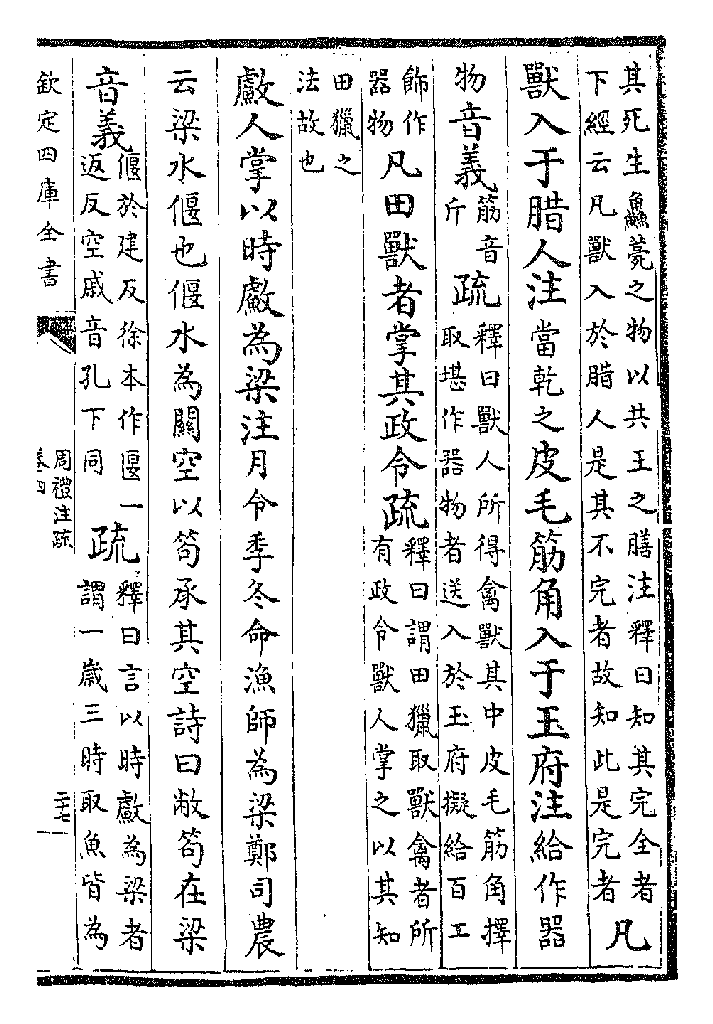 其死生鱻薧之物以共王之膳注釋曰知其完全者
下經云凡獸入於腊人是其不完者故知此是完者凡
獸入于腊人注當乾之皮毛筋角入于玉府注給作器
物音義筋音
斤疏釋曰獸人所得禽獸其中皮毛筋角擇
取堪作器物者送入於玉府擬給百工
飾作
器物凡田獸者掌其政令疏釋曰謂田獵取獸禽者所
有政令獸人掌之以其知
田獵之
法故也
𩼪人掌以時𩼪為梁注月令季冬命漁師為梁鄭司農
云梁水偃也偃水為關空以笱承其空詩曰敝笱在梁
音義偃於建反徐本作匽一
返反空戚音孔下同疏釋曰言以時𩼪為梁者
謂一歳三時取魚皆為
欽定四庫全書
周禮注疏
卷四
二十七